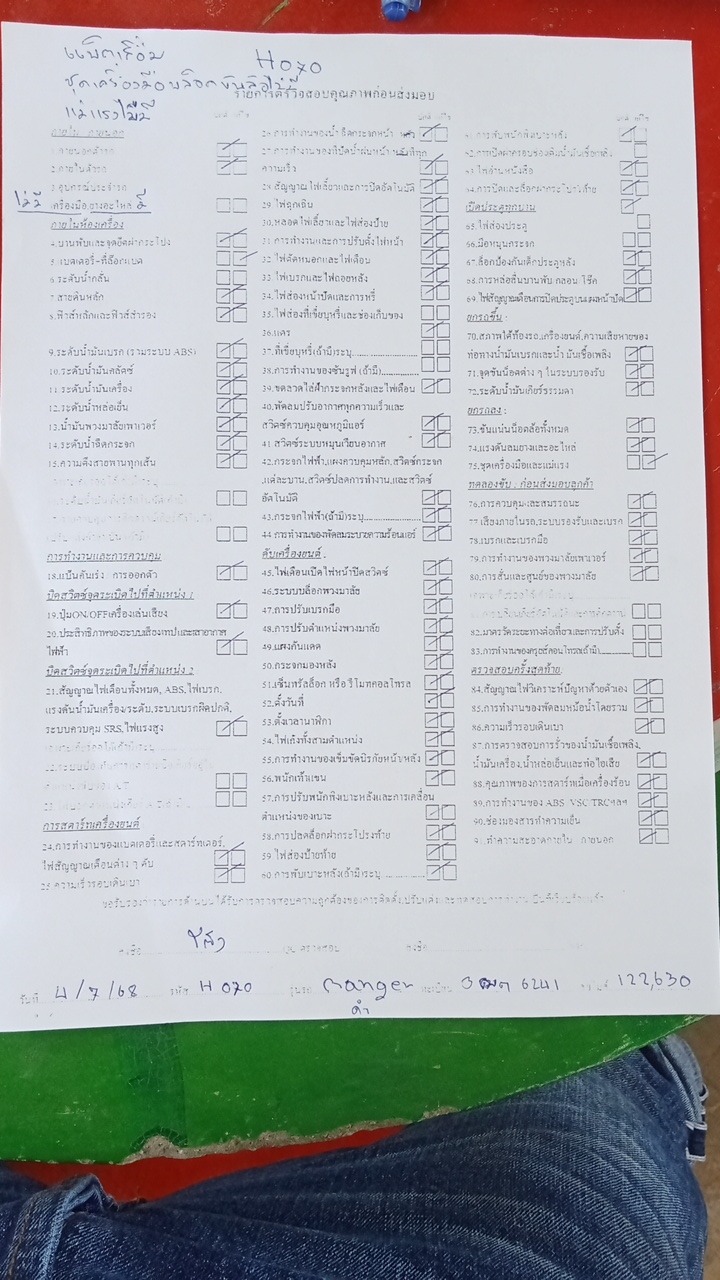 แบ็ตเสื่อม H070
ชุดเครื่องมือบล็อคขันล้อไม่มี
รายการตรวจสอบคุณภาพก่อนส่งมอบ
แม่แรงไม่มี
ภายใน ภายนอก
1.ภายนอกตัวรถ
2.ภายในตัวรถ
3.อุปกรณ์ประจำรถ
ไม่มี เครื่องมือ,ยางอะไหล่ มี
ภายในห้องเครื่อง
4.บานพับและจุดยึดฝากระโปรง
5.แบตเตอรี่-ที่ล็อกแบต
6.ระดับน้ำกลั่น
7.สายดินหลัก
8.ฟิวส์หลักและฟิวส์สำรอง
9.ระดับน้ำมันเบรก (รวมระบบ ABS)
10.ระดับน้ำมันคลัตช์
11.ระดับน้ำมันเครื่อง
12.ระดับน้ำหล่อเย็น
13.น้ำมันพวงมาลัยเพาเวอร์
14.ระดับน้ำฉีดกระจก
15.ความตึงสายพานทุกเส้น
การทำงานและการควบคุม
18.แป้นคันเร่ง การออกตัว
บิดสวิตช์จุดระเบิดไปที่ตำแหน่ง 1
19.ปุ่มON/OFFเครื่องเล่นเสียง
20.ประสิทธิภาพของระบบเสียงเทปและเสาอากาศ
ไฟฟ้า
บิดสวิตช์จุดระเบิดไปที่ตำแหน่ง 2
21.สัญญาณไฟเตือนทั้งหมด, ABS, ไฟเบรก,
แรงดันน้ำมันเครื่อง/ระดับ,ระบบเบรกผิดปกติ,
ระบบควบคุม SRS, ไฟแรงสูง
การสตาร์ทเครื่องยนต์
24.การทำงานของแบตเตอรี่และสตาร์ทเตอร์,
ไฟสัญญาณเตือนต่าง ๆ ดับ
25.ความเร็วรอบเดินเบา
26.การทำงานของน้ำฉีดกระจกหน้า หลัง
27.การทำงานของที่ปัดน้ำฝนหน้า หลังทุก
ความเร็ว
28.สัญญาณไฟเลี้ยวและการปิดอัตโนมัติ
29.ไฟฉุกเฉิน
30.หลอดไฟเลี้ยวและไฟส่องป้าย
31.การทำงานและการปรับตั้งไฟหน้า
32.ไฟตัดหมอกและไฟเตือน
33.ไฟเบรกและไฟถอยหลัง
34.ไฟส่องหน้าปัดและการหรี่
35.ไฟส่องที่เขี่ยบุหรี่และช่องเก็บของ
36.แตร
37.ที่เขี่ยบุหรี่(ถ้ามี)ระบุ
38.การทำงานของซันรูฟ (ถ้ามี)
39.ขดลวดไล่ฝ้ากระจกหลังและไฟเตือน
40.พัดลมปรับอากาศทุกความเร็วและ
สวิตช์ควบคุมอุณหภูมิแอร์
41.สวิตช์ระบบหมุนเวียนอากาศ
42.กระจกไฟฟ้า,แผงควบคุมหลัก,สวิตช์กระจก
แต่ละบาน,สวิตช์ปลดการทำงาน,และสวิตช์
อัตโนมัติ
43.กระจกไฟฟ้า(ถ้ามี)ระบุ
44.การทำงานของพัดลมระบายความร้อนแอร์
ดับเครื่องยนต์ :
45.ไฟเตือนเปิดไฟหน้าปิดสวิตช์
46.ระบบล็อกพวงมาลัย
47.การปรับเบรกมือ
48.การปรับตำแหน่งพวงมาลัย
49.แผงกันแดด
50.กระจกมองหลัง
51.เซ็นทรัลล็อก หรือ รีโมทคอลโทรล
52.ตั้งวันที่
53.ตั้งเวลานาฬิกา
54.ไฟเก๋งทั้งสามตำแหน่ง
55.การทำงานของเข็มขัดนิรภัยหน้า/หลัง
56.พนักเท้าแขน
57.การปรับพนักพิงเบาะหลังและการเคลื่อน
ตำแหน่งของเบาะ
58.การปลดล็อกฝากระโปรงท้าย
59.ไฟส่องป้ายท้าย
60.การพับเบาะหลัง(ถ้ามี)ระบุ
61.การพับพนักพิงเบาะหลัง
62.การเปิดฝาครอบช่องถังน้ำมันเชื้อเพลิง
63.ไฟอ่านหนังสือ
64.การปิดและล็อกฝากระโปรงท้าย
เปิดประตูทุกบาน
65.ไฟส่องประตู
66.มือหมุนกระจก
67.ล็อกป้องกันเด็กประตูหลัง
68.การหล่อลื่นบานพับ กลอน โช๊ค
69.ไฟสัญญาณเตือนการปิดประตูบนแผงหน้าปัด
ยกรถขึ้น :
70.สภาพใต้ท้องรถ,เครื่องยนต์,ความเสียหายของ
ท่อทางน้ำมันเบรกและน้ำมันเชื้อเพลิง
71.จุดขันน็อตต่าง ๆ ในระบบรองรับ
72.ระดับน้ำมันเกียร์ธรรมดา
ยกรถลง :
73.ขันแน่นน็อตล้อทั้งหมด
74.แรงดันลมยางและอะไหล่
75.ชุดเครื่องมือและแม่แรง
ทดลองขับ : ก่อนส่งมอบลูกค้า
76.การควบคุมและสมรรถนะ
77.เสียงภายในรถ,ระบบรองรับและเบรก
78.เบรกและเบรกมือ
79.การทำงานของพวงมาลัยเพาเวอร์
80.การสั่นและศูนย์ของพวงมาลัย
82.มาตรวัดระยะทางต่อเที่ยวและการปรับตั้ง
83.การทำงานของครูสคอนโทรล(ถ้ามี)
ตรวจสอบครั้งสุดท้าย
84.สัญญาณไฟวิเคราะห์ปัญหาด้วยตัวเอง
85.การทำงานของพัดลมหม้อน้ำโดยรวม
86.ความเร็วรอบเดินเบา
87.การตรวจสอบการรั่วของน้ำมันเชื้อเพลิง,
น้ำมันเครื่อง,น้ำหล่อเย็นและท่อไอเสีย
88.คุณภาพของการสตาร์ทเมื่อเครื่องร้อน
89.การทำงานของ ABS/VSC/TRCฯลฯ
90.ช่องมองสารทำความเย็น
91.ทำความสะอาดภายใน ภายนอก
วันที่ 4/7/68 รหัส H070 รุ่นรถ Ranger ทะเบียน 6241 122,630
ดำ